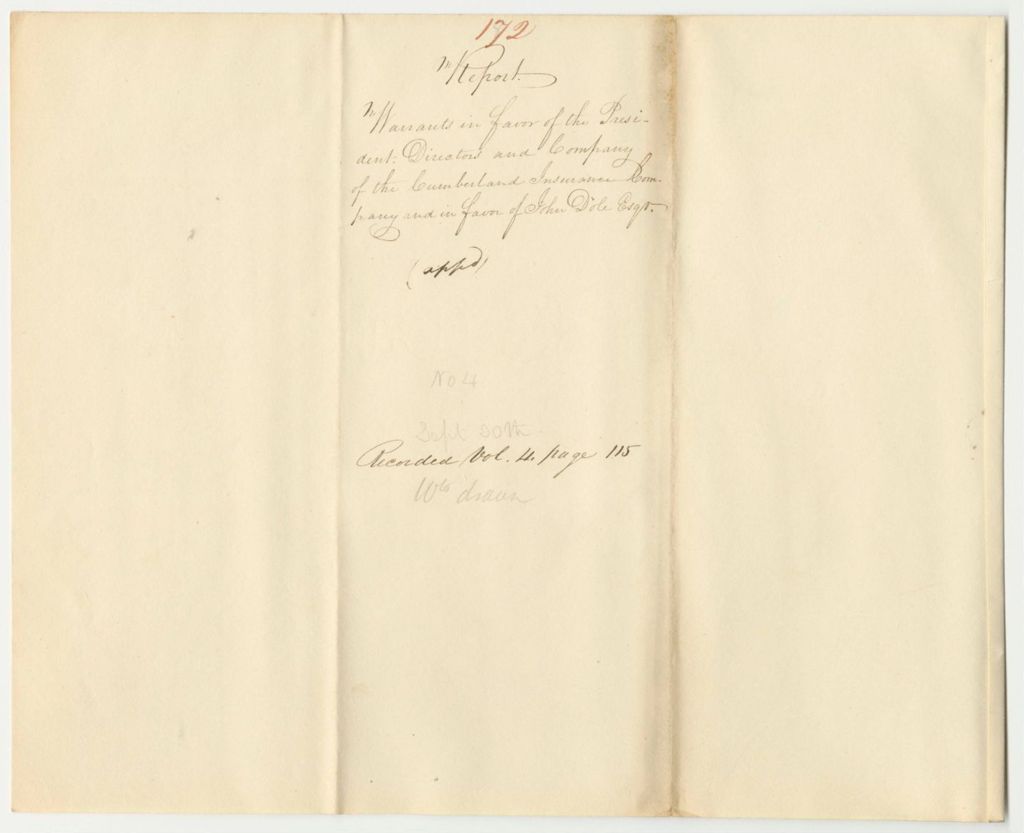 172
Report.
Warrants in favor of the Presi-
dent: Directors and Company
of the Cumberland Insurance Com-
pany and in favor of John Dole Esqr.
(appd)
No 4
Sept 30th
Recorded Vol. 4. page 115
Wts drawn